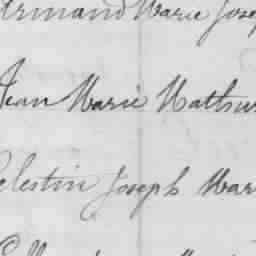 Armand Marie Josep
Jean Marie Mathur
Celestin Joseph Mar